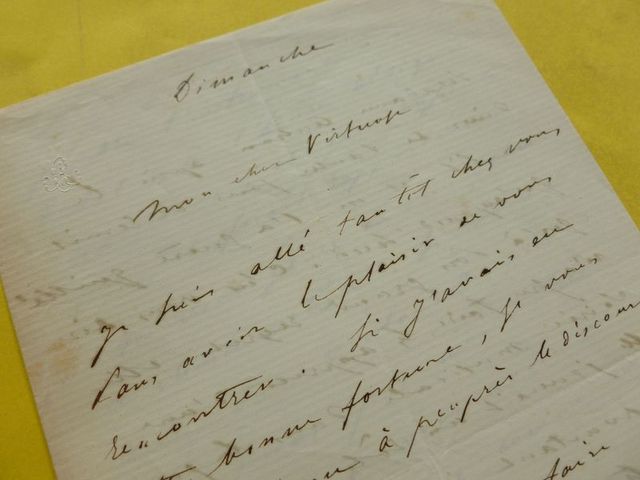 Dimanche
Mon cher Virtuose
je suis allé tantôt chez vous
sans avoir le plaisir de vous
rencontrer. Si j'avais eu
bonne fortune, je vous
à peu près le discou